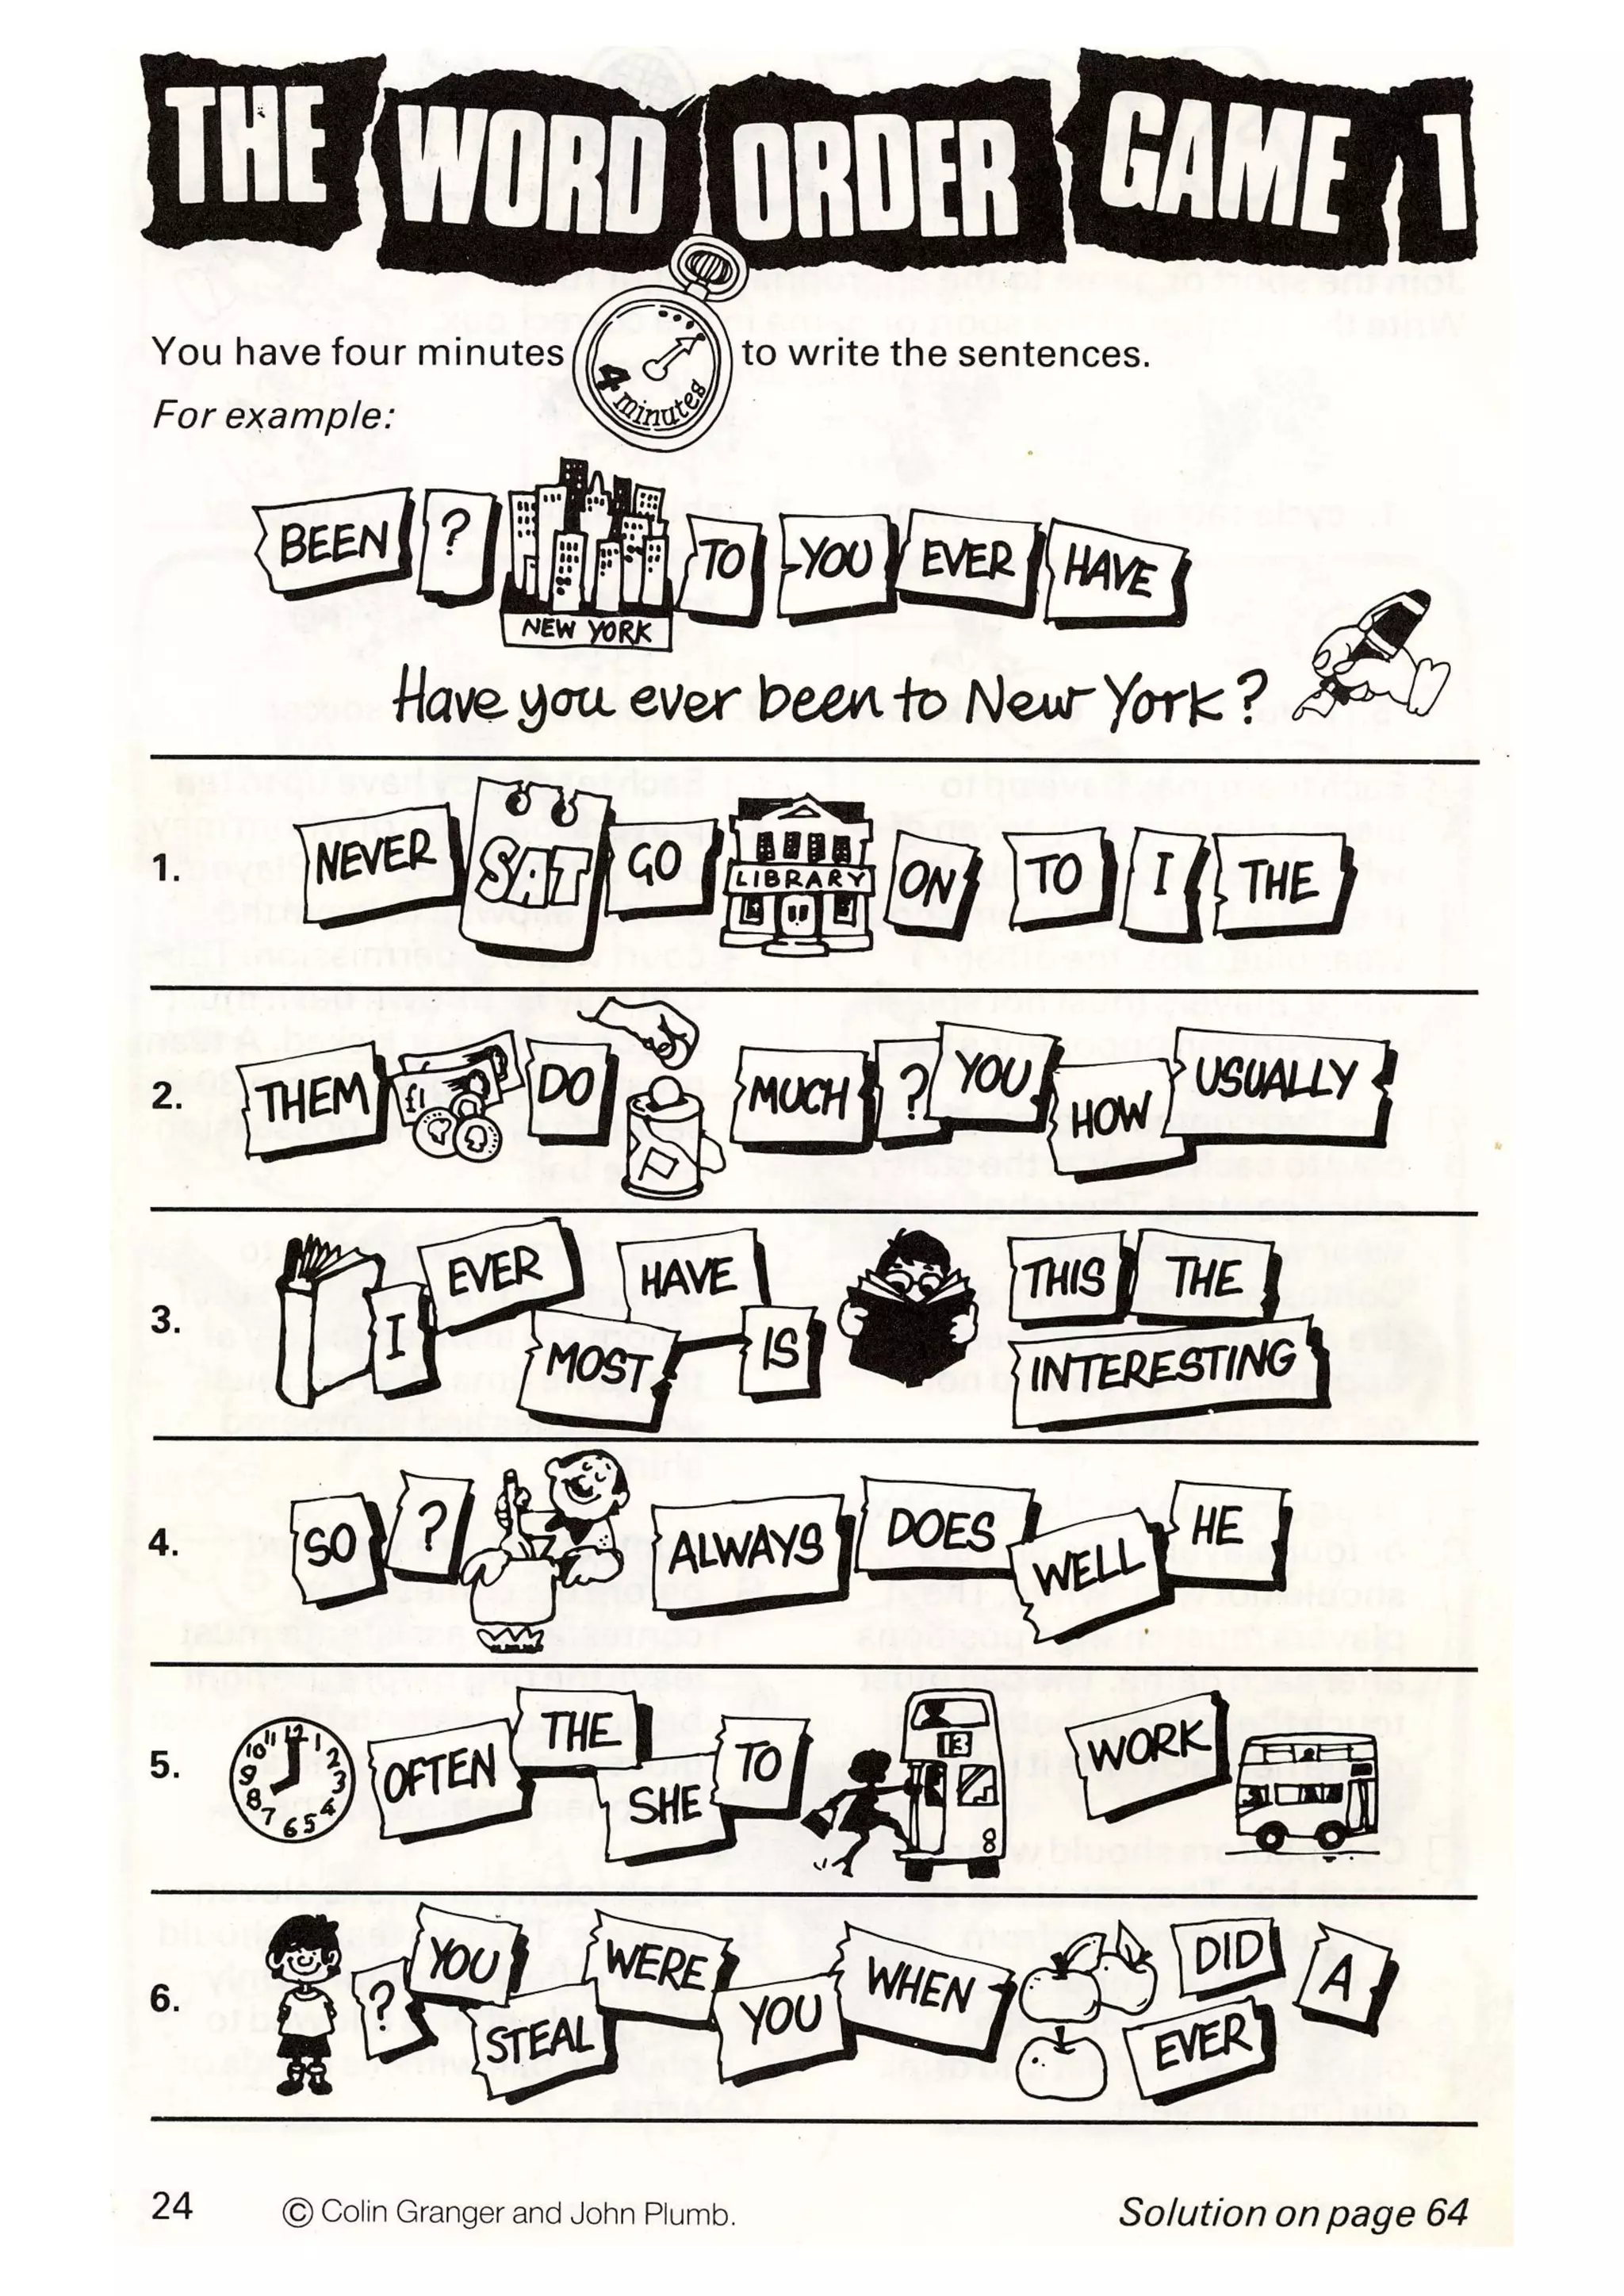 THE WORD ORDER GAME 1
You have four minutes 4 minutes to write the sentences.
For example:
BEEN ? NEW YORK TO YOU EVER HAVE
Have you ever been to New York?
1. NEVER SAT GO LIBRARY ON TO I THE
2. THEM £1 DO MUCH ? YOU HOW USUALLY
3. I EVER MOST HAVE IS THIS THE INTERESTING
4. SO ? ALWAYS DOES WELL HE
5. 12 1 2 3 4 5 6 7 8 9 10 11 OFTEN THE SHE TO 13 8 WORK
6. ? YOU STEAL WERE YOU WHEN DID EVER A
24 © Colin Granger and John Plumb. Solution on page 64